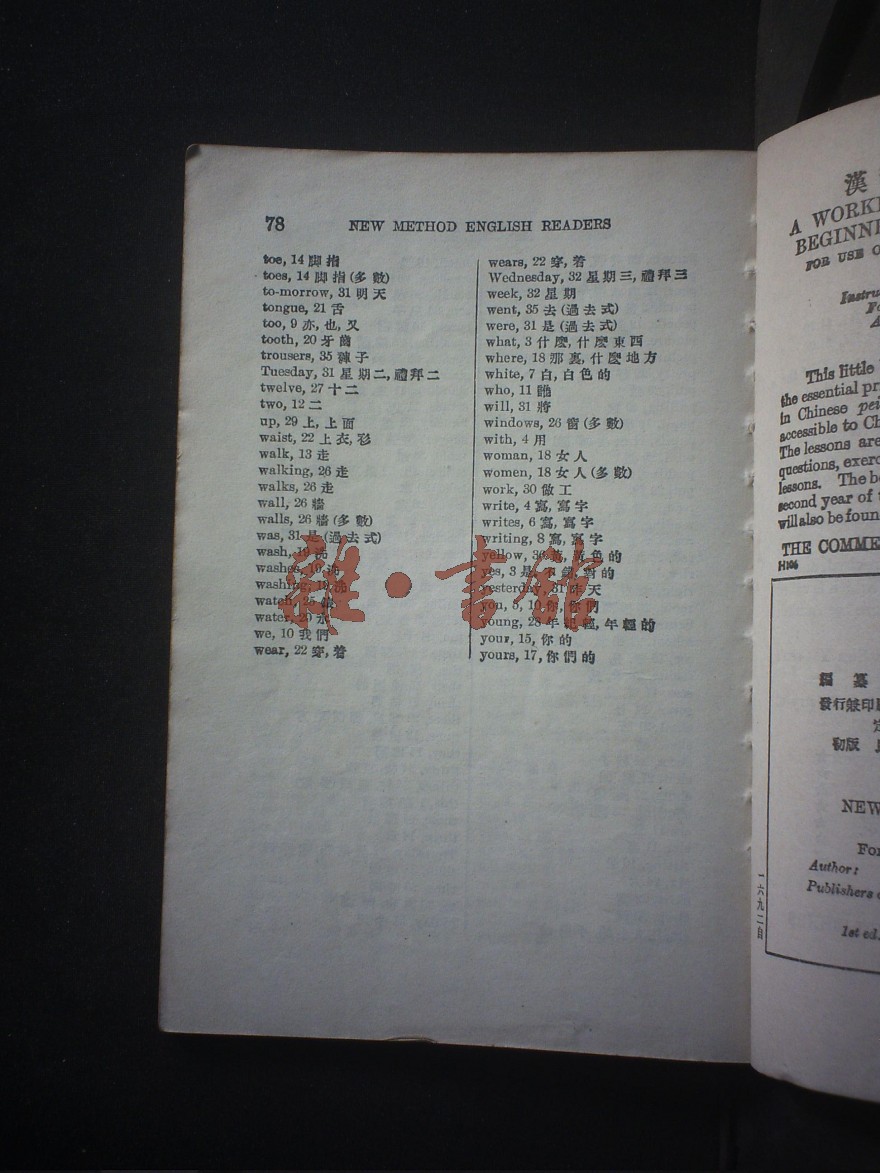 78 NEW METHOD ENGLISH READERS
toe, 14 脚指
toes, 14 脚指(多數)
to-morrow, 31 明天
tongue, 21 舌
too, 9 亦, 也, 又
tooth, 20 牙齒
trousers, 35 褲子
Tuesday, 31 星期二, 禮拜二
twelve, 27 十二
two, 12 二
up, 29 上, 上面
waist, 22 上衣, 衫
walk, 13 走
walking, 26 走
walks, 26 走
wall, 26 牆
walls, 26 牆(多數)
was, 31 是(過去式)
wash, 19 洗
washes, 19 洗
washing, 19 洗
watch, 25 錶
water, 20 水
we, 10 我們
wear, 22 穿, 着
wears, 22 穿, 着
Wednesday, 32 星期三, 禮拜三
week, 32 星期
went, 35 去(過去式)
were, 31 是(過去式)
what, 3 什麽, 什麽東西
where, 18 那裏, 什麽地方
white, 7 白, 白色的
who, 11 誰
will, 31 將
windows, 26 窗(多數)
with, 4 用
woman, 18 女人
women, 18 女人(多數)
work, 30 做工
write, 4 寫, 寫字
writes, 6 寫, 寫字
writing, 8 寫, 寫字
yellow, 36 黃, 黃色的
yes, 3 是, 不錯, 對的
yesterday, 31 昨天
you, 5, 10 你, 你們
young, 28 年紀輕, 年輕的
your, 15, 你的
yours, 17, 你們的
雜·書館
漢
A
BEGINN
FOR USE O
This little
the essential
in Chinese
accessible to
The lessons are
questions,
lessons. The
second year of
will also be foun
THE COMME
H106
編纂
發行兼印
初版
NEW
For
Author:
Publishers
1st ed.
一六九二自